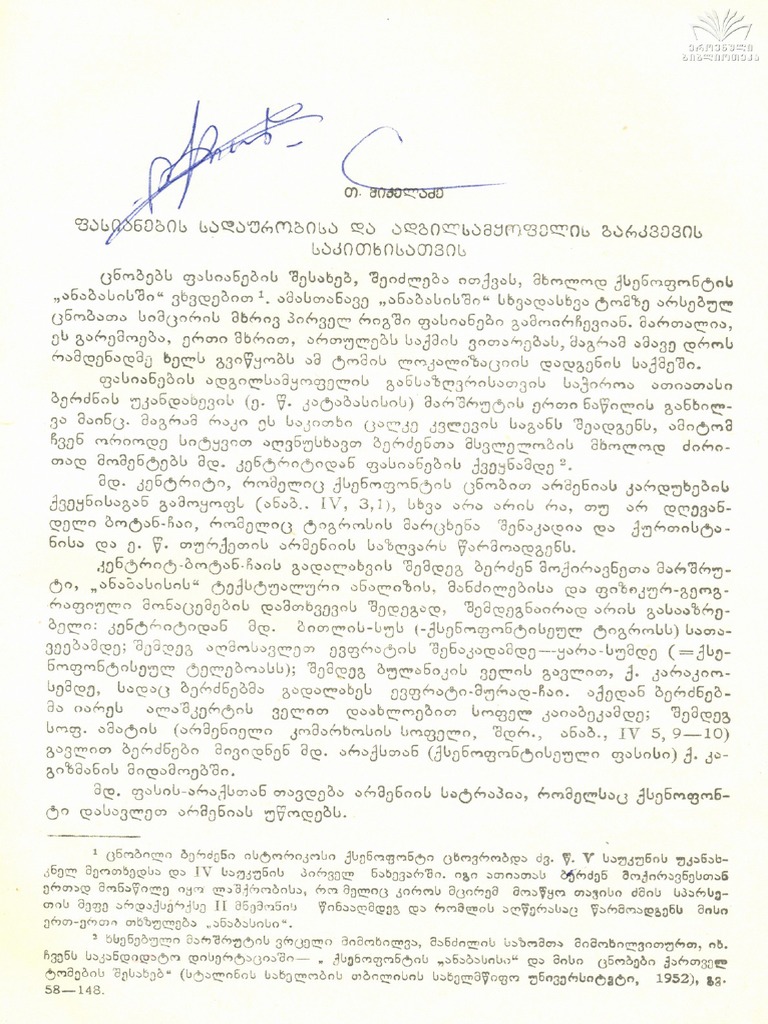 ეროვნული
ბიბლიოთეკა
თ. მიქელაძე
ფასიანების სადაურობისა და ადგილსამყოფელის გარკვევის
საკითხისათვის
ცნობებს ფასიანების შესახებ, შეიძლება ითქვას, მხოლოდ ქსენოფონტის
„ანაბასისში“ ვხვდებით ¹. ამასთანავე „ანაბასისში“ სხვადასხვა ტომზე არსებულ
ცნობათა სიმცირის მხრივ პირველ რიგში ფასიანები გამოირჩევიან. მართალია,
ეს გარემოება, ერთი მხრით, ართულებს საქმის ვითარებას, მაგრამ ამავე დროს
რამდენადმე ხელს გვიწყობს ამ ტომის ლოკალიზაციის დადგენის საქმეში.
ფასიანების ადგილსამყოფელის განსაზღვრისათვის საჭიროა ათიათასი
ბერძნის უკანდახევის (ე. წ. კატაბასისის) მარშრუტის ერთი ნაწილის განხილ-
ვა მაინც. მაგრამ რაკი ეს საკითხი ცალკე კვლევის საგანს შეადგენს, ამიტომ
ჩვენ ორიოდე სიტყვით აღვნუსხავთ ბერძენთა მსვლელობის მხოლოდ ძირი-
თად მომენტებს მდ. კენტრიტიდან ფასიანების ქვეყნამდე ².
მდ. კენტრიტი, რომელიც ქსენოფონტის ცნობით არმენიას კარდუხების
ქვეყნისაგან გამოყოფს (ანაბ.. IV, 3,1), სხვა არა არის რა, თუ არ დღევან-
დელი ბოტან-ჩაი, რომელიც ტიგროსის მარცხენა შენაკადია და ქურთისტა-
ნისა და ე. წ. თურქეთის არმენიის საზღვარს წარმოადგენს.
კენტრიტ-ბოტან-ჩაის გადალახვის შემდეგ ბერძენ მოქირავნეთა მარშრუ-
ტი, „ანაბასისის“ ტექსტუალური ანალიზის, მანძილებისა და ფიზიკურ-გეოგ-
რაფიული მონაცემების დამთხვევის შედეგად, შემდეგნაირად არის გასააზრე-
ბელი: კენტრიტიდან მდ. ბითლის-სუს (-ქსენოფონტისეულ ტიგროსს) სათა-
ვეებამდე; შემდეგ აღმოსავლეთ ევფრატის შენაკადამდე—ყარა-სუმდე (=ქსე-
ნოფონტისეულ ტელებოასს); შემდეგ ბულანიკის ველის გავლით, ქ. კარაკიო-
სემდე, სადაც ბერძნებმა გადალახეს ევფრატი-მურად-ჩაი. აქედან ბერძნებ-
მა იარეს ალაშკერტის ველით დაახლოებით სოფელ კაიაბეკამდე; შემდეგ
სოფ. ამატის (არმენიელი კომარხოსის სოფელი, შდრ., ანაბ., IV 5, 9—10)
გავლით ბერძნები მივიდნენ მდ. არაქსთან (ქსენოფონტისეული ფასისი) ქ. კა-
გიზმანის მიდამოებში.
მდ. ფასის-არაქსთან თავდება არმენიის სატრაპია, რომელსაც ქსენოფონ-
ტი დასავლეთ არმენიას უწოდებს.
¹ ცნობილი ბერძენი ისტორიკოსი ქსენოფონტი ცხოვრობდა ძვ. წ. V საუკუნის უკანას-
კნელ მეოთხედსა და IV საუკუნის პირველ ნახევარში. იგი ათიათას ბერძენ მოქირავნესთან
ერთად მონაწილე იყო ლაშქრობისა, რომელიც კიროს მცირემ მოაწყო თავისი ძმის სპარსე-
თის მეფე არდაქსერქსე II მნემონის წინააღმდეგ და რომლის აღწერასაც წარმოადგენს მისი
ერთ-ერთი თხზულება „ანაბასისი“.
² ხსენებული მარშრუტის ვრცელი მიმოხილვა, მანძილის საზომთა მიმოხილვითურთ, იხ.
ჩვენს საკანდიდატო დისერტაციაში— „ ქსენოფონტის „ანაბასისი“ და მისი ცნობები ქართველ
ტომების შესახებ“ (სტალინის სახელობის თბილისის სახელმწიფო უნივერსიტეტი, 1952), გვ.
58—148.